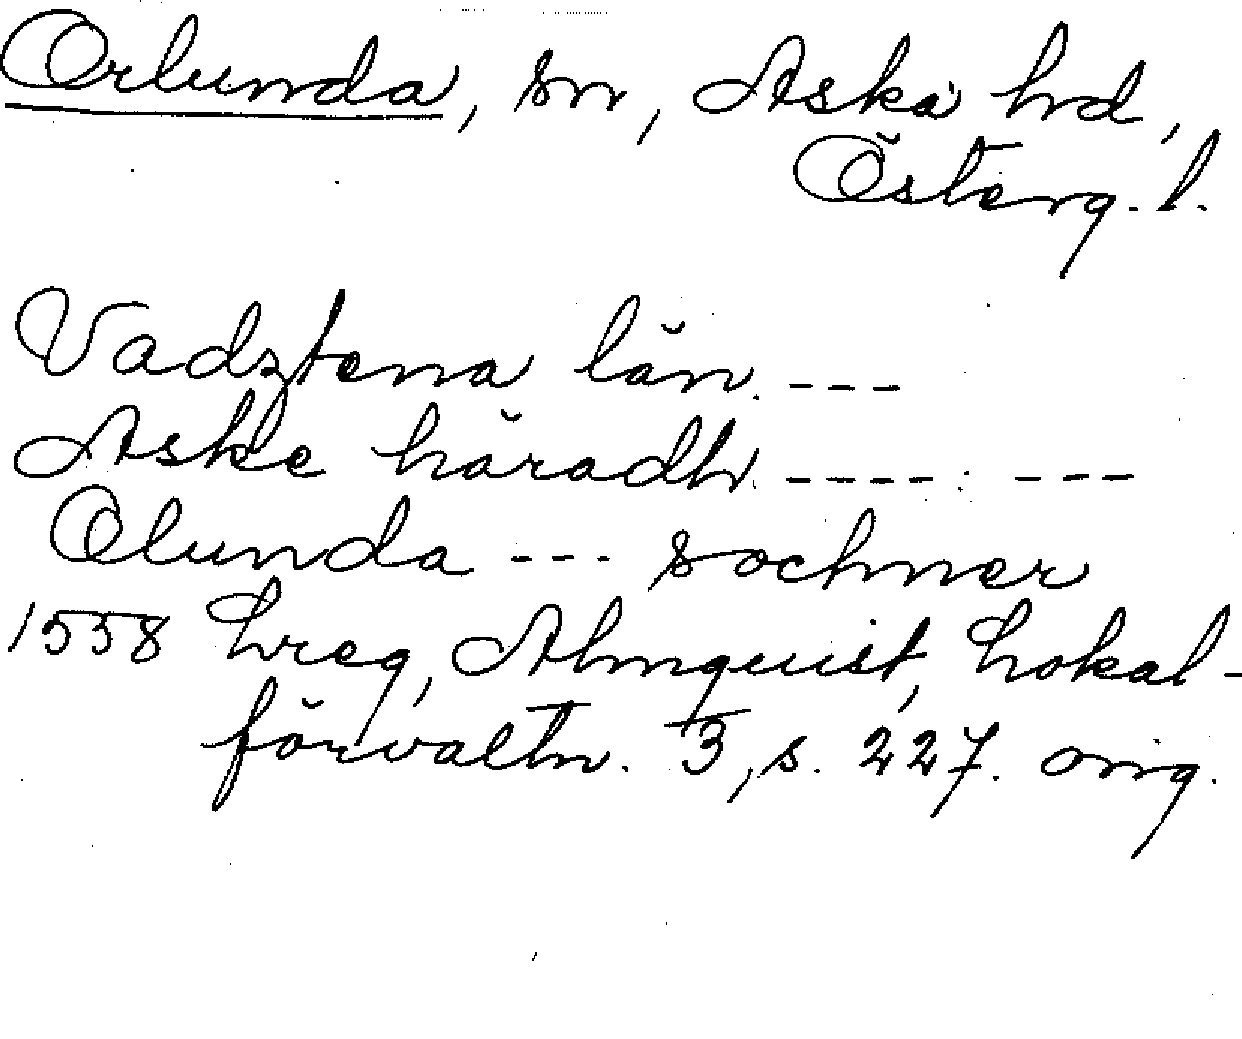 Orlunda, sn, Aska hd,
Österg. l.
Vadztena län. ---
Aske häradh. ---- ---
Olunda --- sochner
1558 Lreg, Almquist, Lokal-
förvaltn. 3, s. 227. orig.